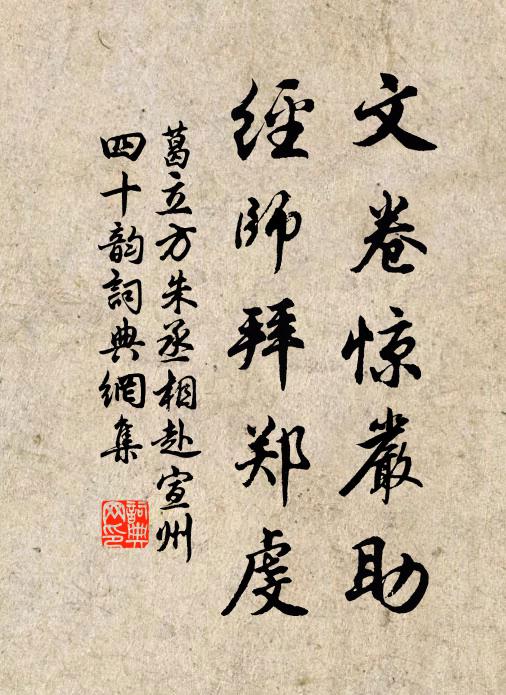 文卷惊嚴助
經師拜郑虔
葛立方朱丞相赴宣州
四十韵詞典網集
詞典網印